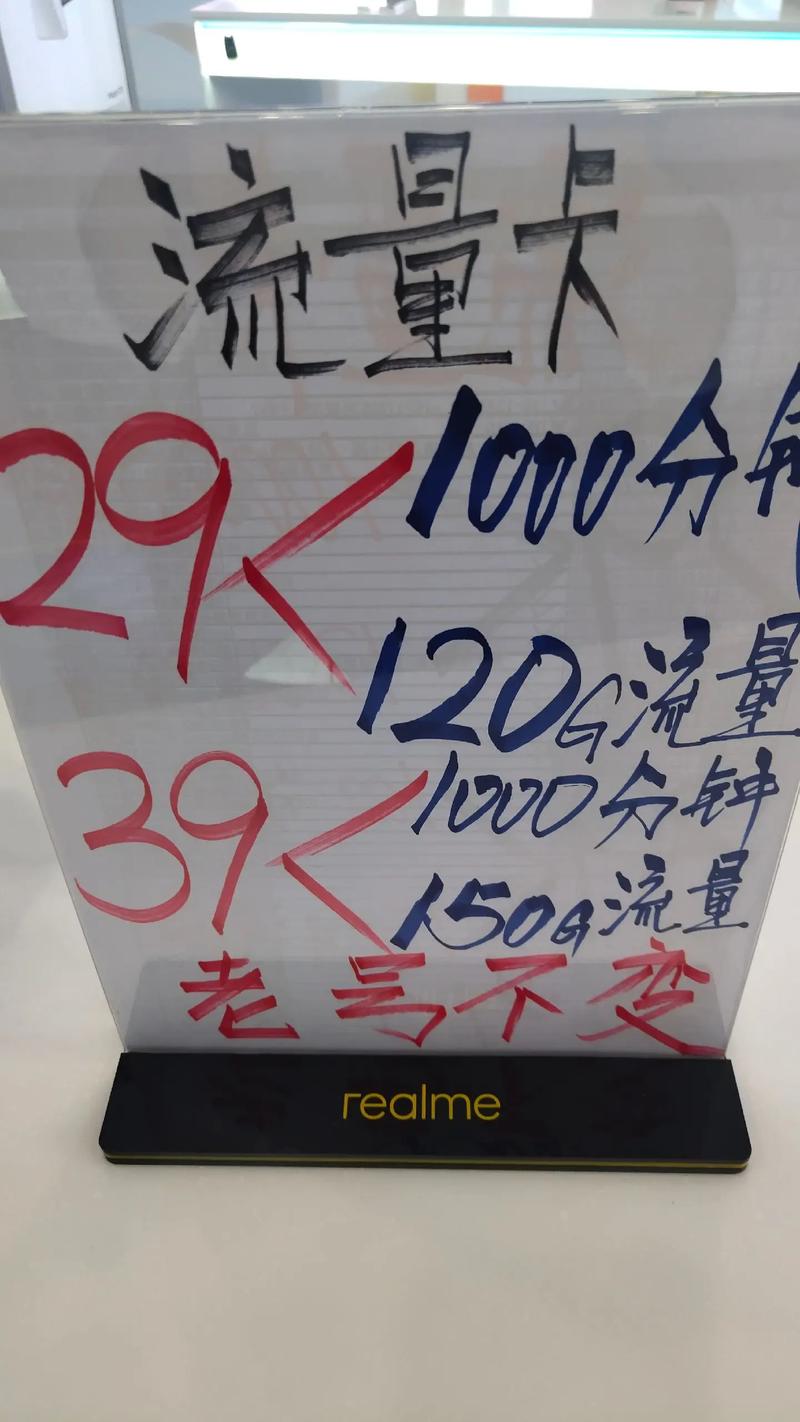 流量卡
29< 1000分钟
120G流量
39< 1000分钟
150G流量
老号不变
realme